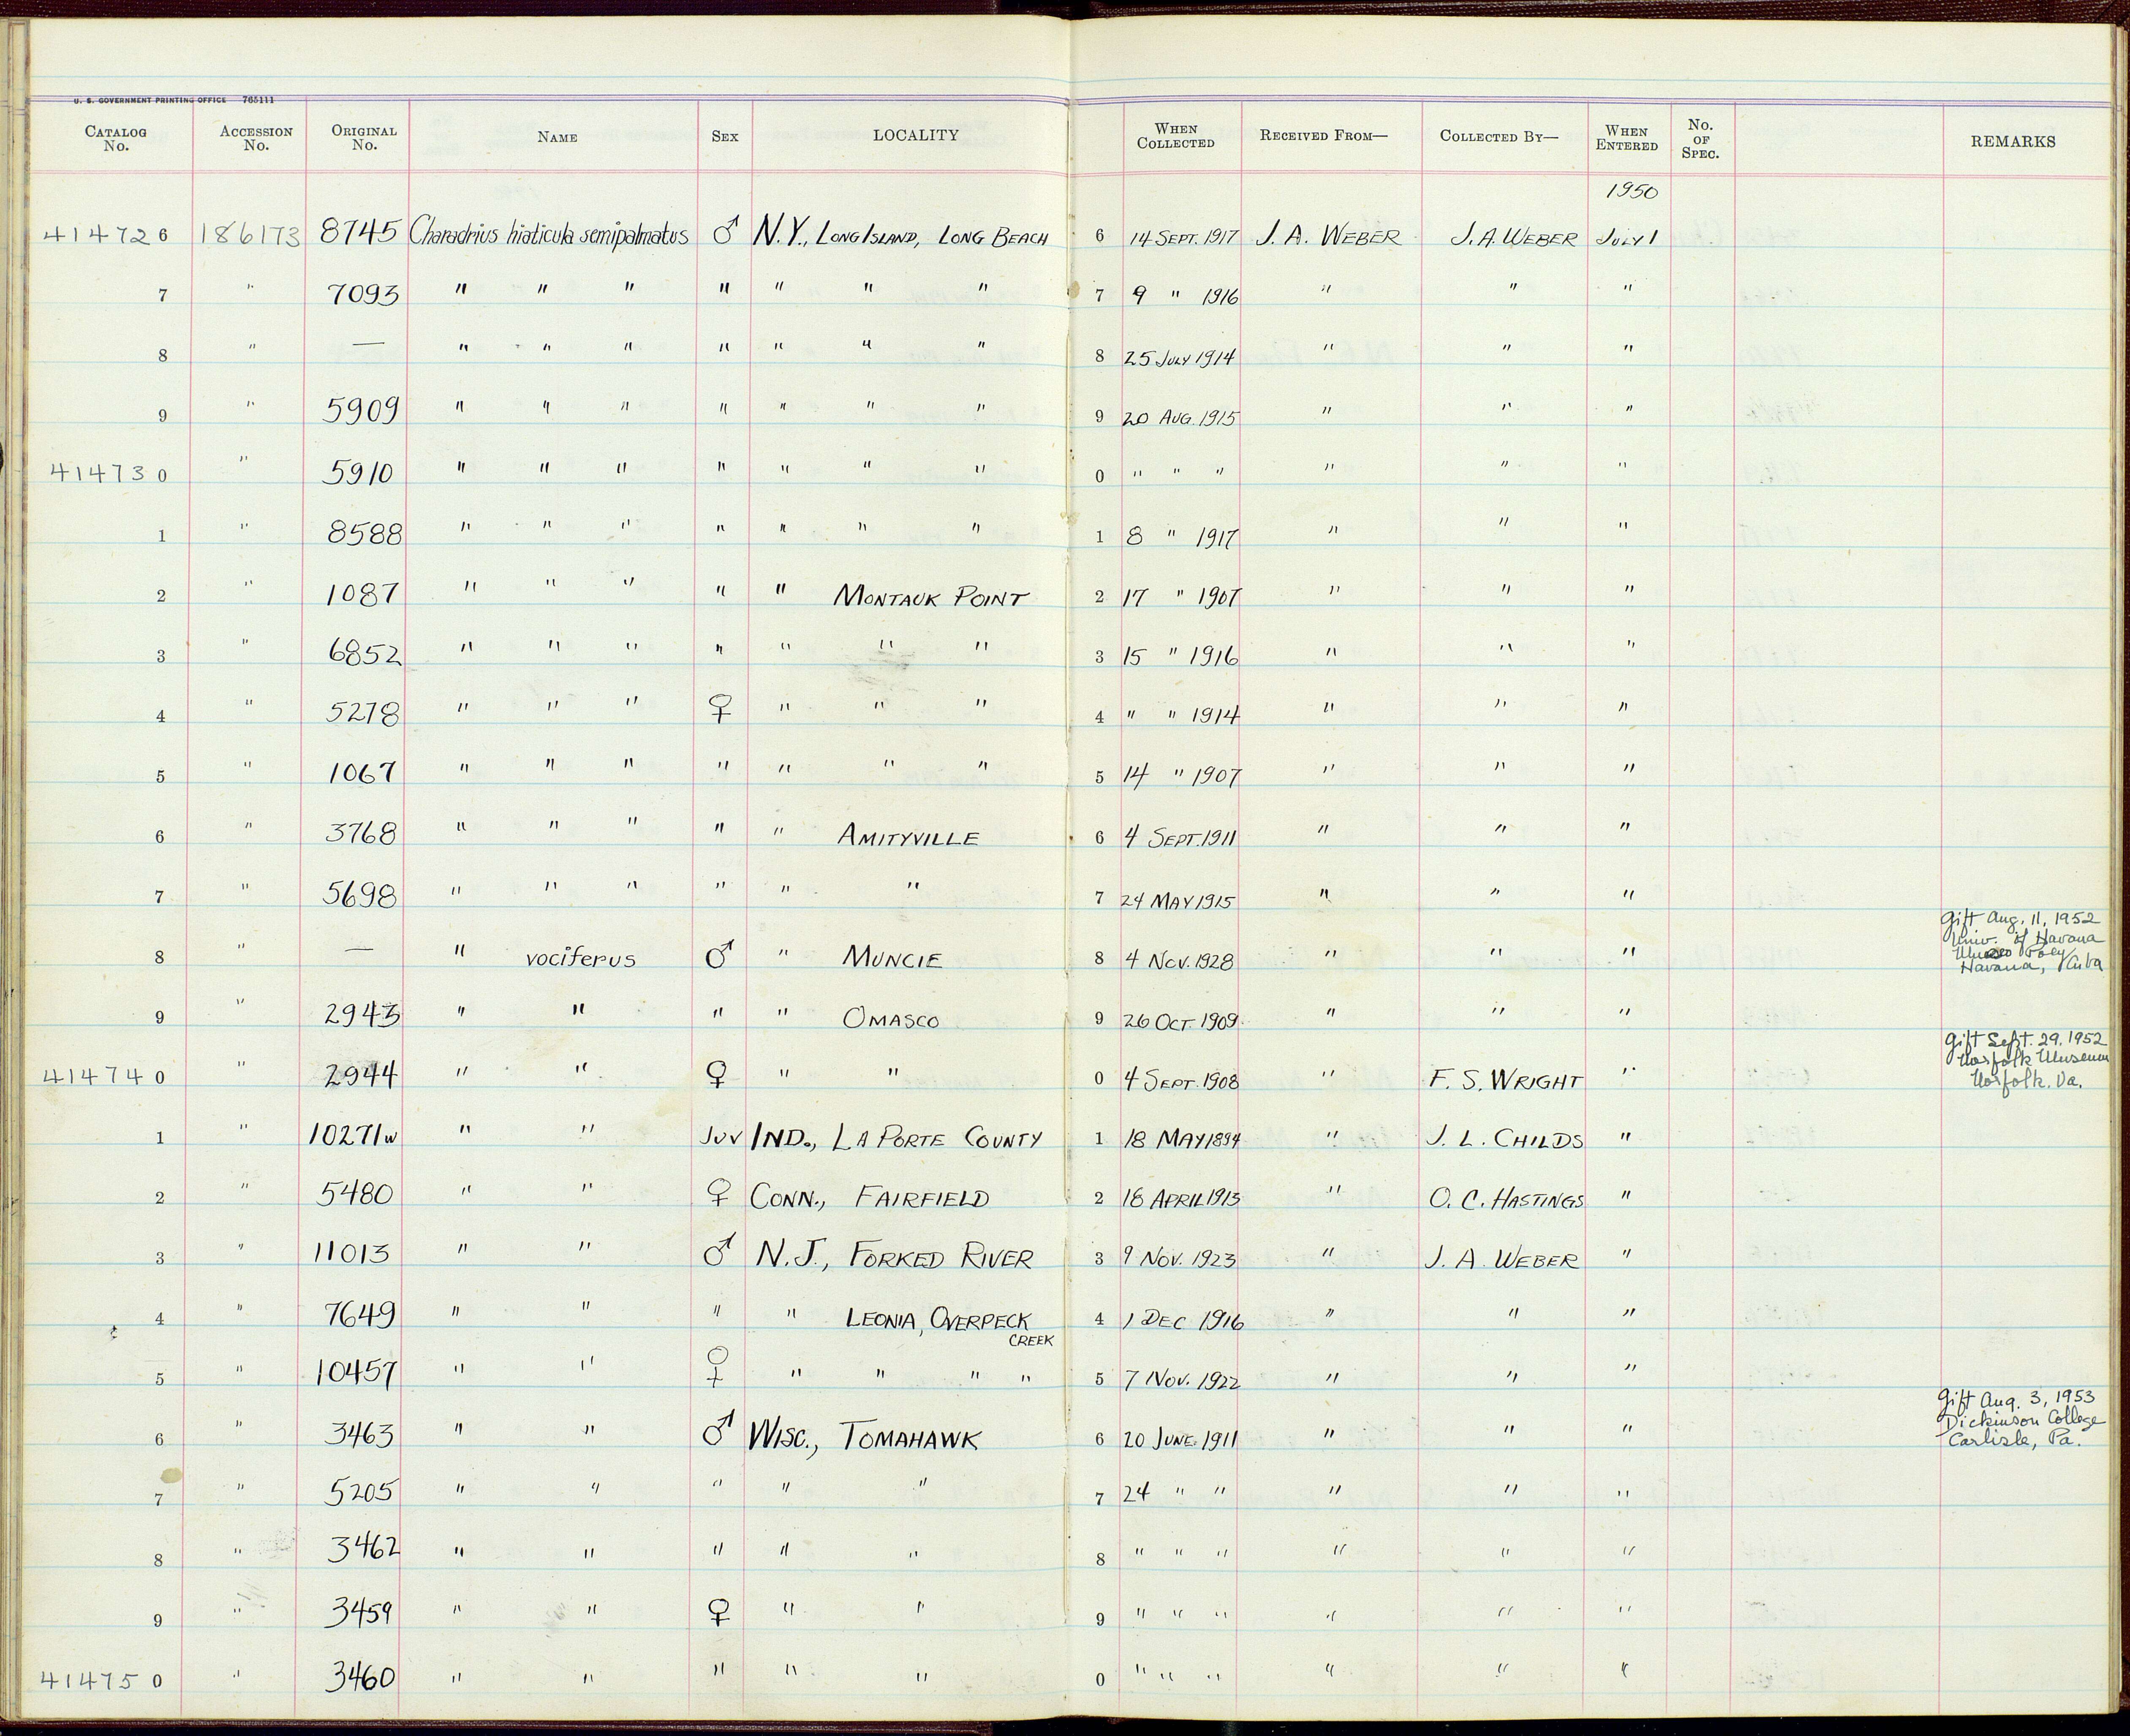 U. S. GOVERNMENT PRINTING OFFICE 765111
CATALOG No. ACCESSION No. ORIGINAL No. NAME SEX LOCALITY WHEN COLLECTED RECEIVED FROM— COLLECTED BY— WHEN ENTERED No. OF SPEC. REMARKS
1950
414726 186173 8745 Charadrius hiaticula semipalmatus ♂ N.Y., LONG ISLAND, LONG BEACH 6 14 SEPT. 1917 J. A. WEBER J. A. WEBER JULY 1
7 " 7093 " " " " " " " 7 9 " 1916 " " "
8 " — " " " " " " " 8 25 JULY 1914 " " "
9 " 5909 " " " " " " " 9 20 AUG. 1915 " " "
414730 " 5910 " " " " " " " 0 " " " " " "
1 " 8588 " " " " " " " 1 8 " 1917 " " "
2 " 1087 " " " " " MONTAUK POINT 2 17 " 1907 " " "
3 " 6852 " " " " " " " 3 15 " 1916 " " "
4 " 5278 " " " ♀ " " " 4 " " 1914 " " "
5 " 1067 " " " " " " " 5 14 " 1907 " " "
6 " 3768 " " " " " AMITYVILLE 6 4 SEPT. 1911 " " "
7 " 5698 " " " " " " 7 24 MAY 1915 " " "
8 " — " vociferus ♂ " MUNCIE 8 4 NOV. 1928 " " " Gift Aug. 11, 1952
Univ. of Havana
Museo Poey
Havana, Cuba
9 " 2943 " " " " OMASCO 9 26 OCT. 1909 " " "
414740 " 2944 " " ♀ " " 0 4 SEPT. 1908 " F. S. WRIGHT " Gift Sept. 29, 1952
Norfolk Museum
Norfolk. Va.
1 " 10271w " " JUV IND., LA PORTE COUNTY 1 18 MAY 1894 " J. L. CHILDS "
2 " 5480 " " ♀ CONN., FAIRFIELD 2 18 APRIL 1913 " O. C. HASTINGS "
3 " 11013 " " ♂ N.J., FORKED RIVER 3 9 NOV. 1923 " J. A. WEBER "
4 " 7649 " " " " LEONIA, OVERPECK 4 1 DEC 1916 " " "
CREEK
5 " 10457 " " ♀ " " " " 5 7 NOV. 1922 " " "
6 " 3463 " " ♂ WISC., TOMAHAWK 6 20 JUNE. 1911 " " " Gift Aug. 3, 1953
Dickinson College
Carlisle, Pa.
7 " 5205 " " " " " 7 24 " " " " "
8 " 3462 " " " " " 8 " " " " " "
9 " 3459 " " ♀ " " 9 " " " " " "
414750 " 3460 " " " " " 0 " " " " " "